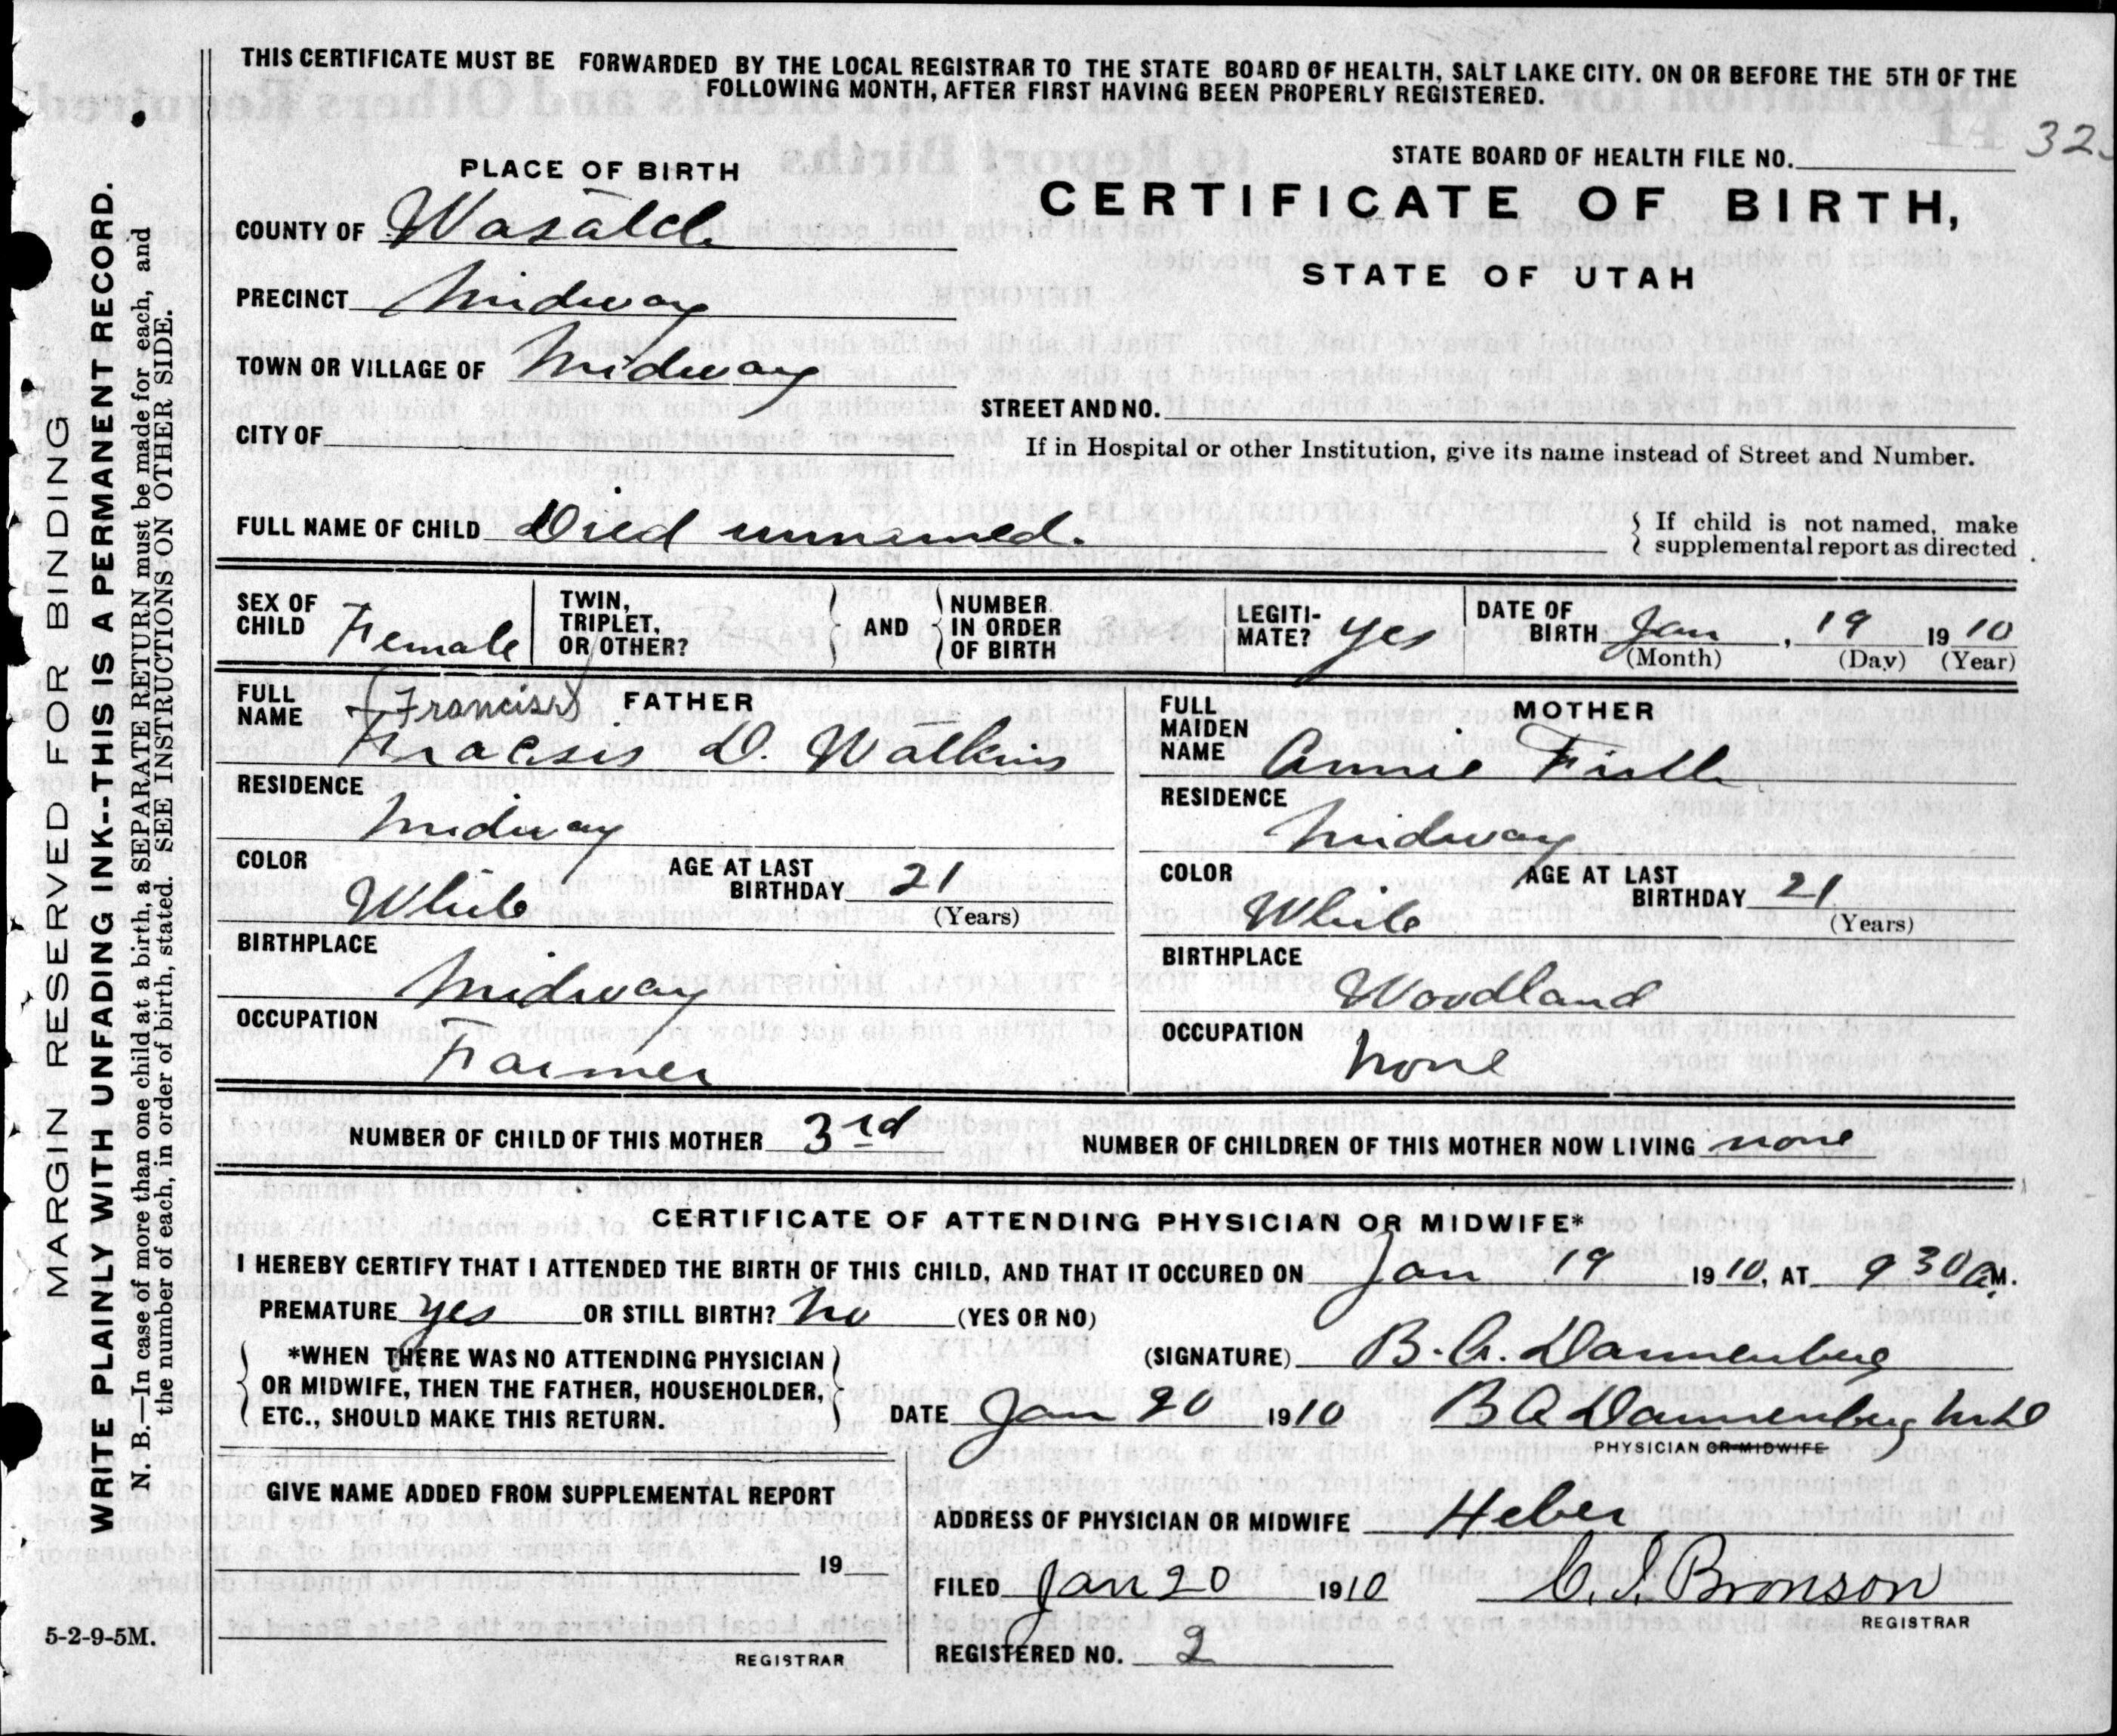 THIS CERTIFICATE MUST BE FORWARDED BY THE LOCAL REGISTRAR TO THE STATE BOARD OF HEALTH, SALT LAKE CITY. ON OR BEFORE THE 5TH OF THE
FOLLOWING MONTH, AFTER FIRST HAVING BEEN PROPERLY REGISTERED.
STATE BOARD OF HEALTH FILE NO.
PLACE OF BIRTH
CERTIFICATE OF BIRTH,
STATE OF UTAH
COUNTY OF Wasatch
PRECINCT Midway
TOWN OR VILLAGE OF Midway
STREET AND NO.
CITY OF
If in Hospital or other Institution, give its name instead of Street and Number.
FULL NAME OF CHILD Died unnamed.
If child is not named, make
supplemental report as directed
SEX OF CHILD Female
TWIN, TRIPLET, OR OTHER?
AND
NUMBER IN ORDER OF BIRTH
LEGITI-MATE? yes
DATE OF BIRTH Jan, 19 1910
(Month) (Day) (Year)
FULL NAME (Francis) FATHER
Fracsis D. Watkins
FULL MAIDEN NAME MOTHER
Annie
RESIDENCE Midway
RESIDENCE Midway
COLOR White AGE AT LAST BIRTHDAY 21 (Years)
COLOR White AGE AT LAST BIRTHDAY 21 (Years)
BIRTHPLACE Midway
BIRTHPLACE Woodland
OCCUPATION Farmer
OCCUPATION None
NUMBER OF CHILD OF THIS MOTHER 3rd NUMBER OF CHILDREN OF THIS MOTHER NOW LIVING none
CERTIFICATE OF ATTENDING PHYSICIAN OR MIDWIFE*
I HEREBY CERTIFY THAT I ATTENDED THE BIRTH OF THIS CHILD, AND THAT IT OCCURED ON Jan 19 1910, AT 9 30 A M.
PREMATURE yes OR STILL BIRTH? No (YES OR NO)
*WHEN THERE WAS NO ATTENDING PHYSICIAN
OR MIDWIFE, THEN THE FATHER, HOUSEHOLDER,
ETC., SHOULD MAKE THIS RETURN.
(SIGNATURE) B. A. Dannenberg
DATE Jan 20 1910 B A Dannenberg M D
PHYSICIAN OR MIDWIFE
GIVE NAME ADDED FROM SUPPLEMENTAL REPORT
19
REGISTRAR
ADDRESS OF PHYSICIAN OR MIDWIFE Heber
FILED Jan 20 1910 C. I. Bronson
REGISTRAR
REGISTERED NO. 2
5-2-9-5M.
MARGIN RESERVED FOR BINDING
WRITE PLAINLY WITH UNFADING INK--THIS IS A PERMANENT RECORD.
N. B.—In case of more than one child at a birth, a SEPARATE RETURN must be made for each, and
the number of each, in order of birth, stated. SEE INSTRUCTIONS ON OTHER SIDE.